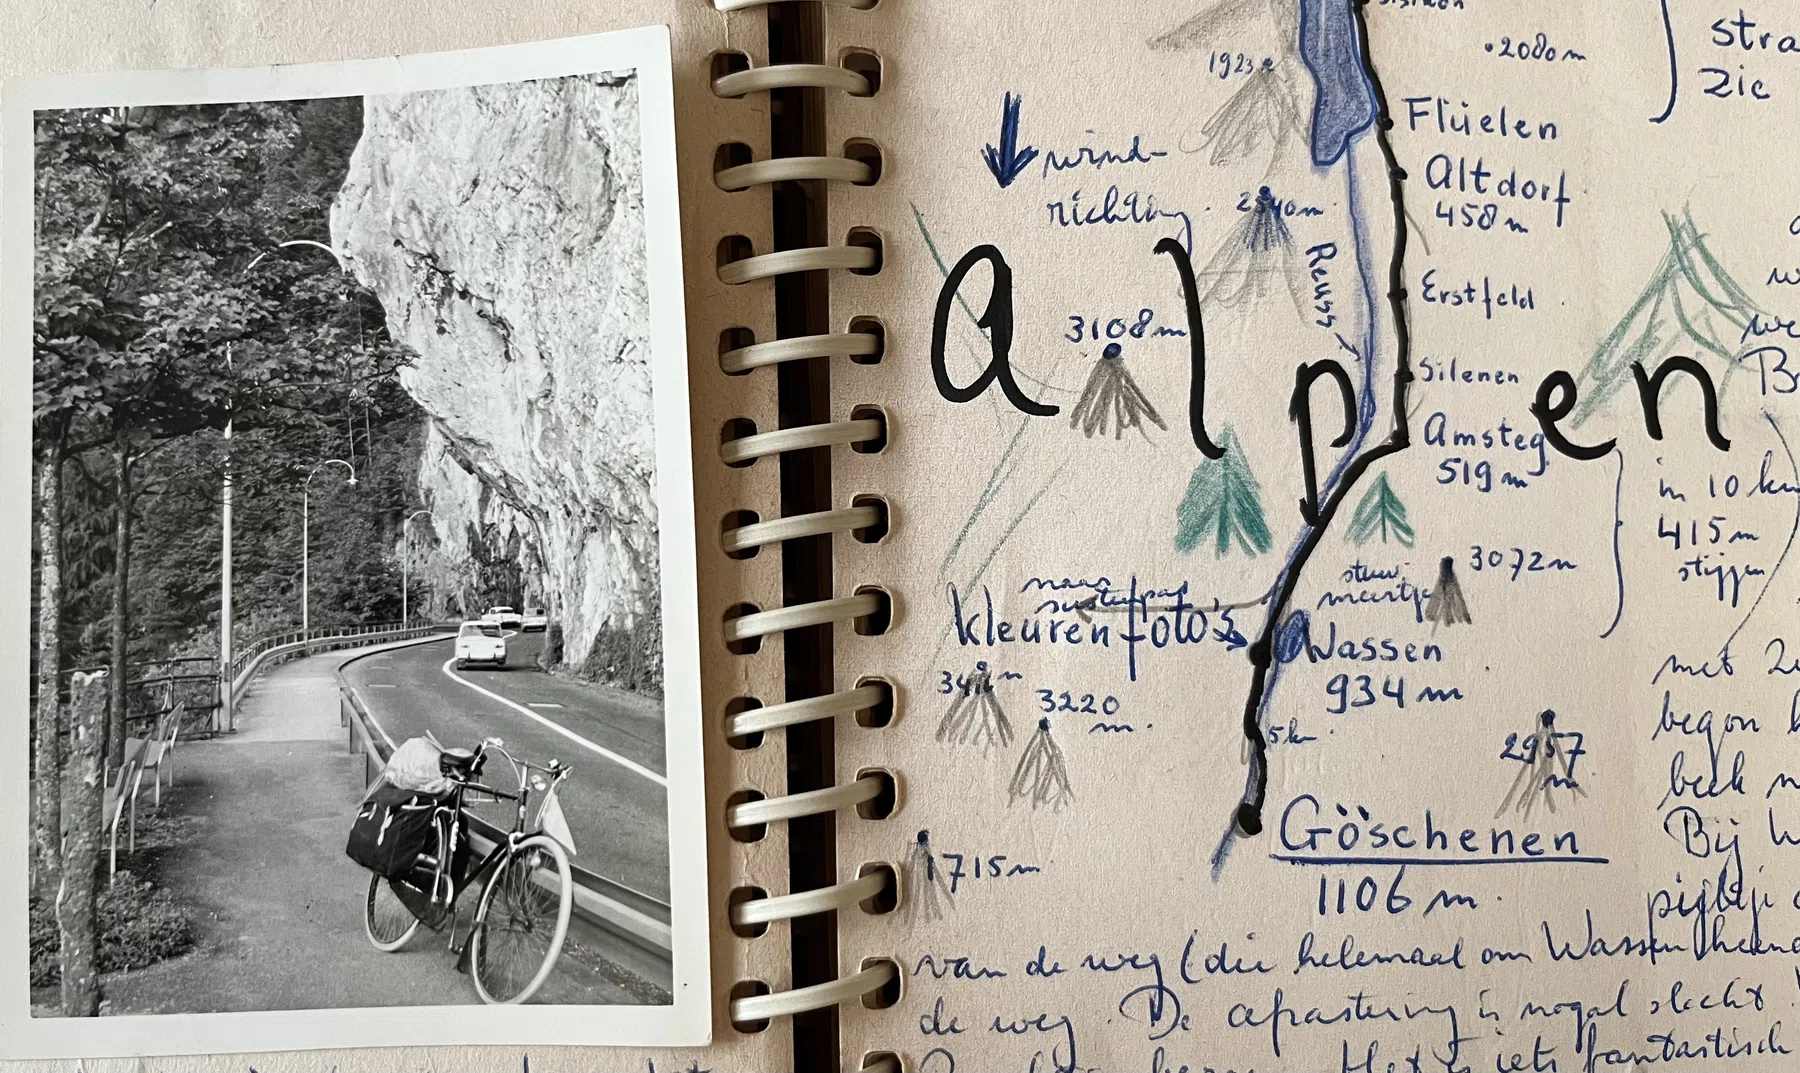 stra
zie
.2080 m
1923
Flüelen
wind-
richting.
Altdorf
458 m
2540 m.
Reuss
Erstfeld
3108 m
Alpen
Silenen
Amsteg
519 m
in 10 km
415 m
stijgen
3072 m
stuw-
meertje
naar
sustenpas
kleuren foto's
Wassen
934 m
3220
m.
5 km.
2957
m
met
begon
Göschenen
1106 m.
Bij
1715 m
van de weg (die helemaal om Wassen heen
de weg. De afrastering is nogal slecht.
Het is iets fantastisch